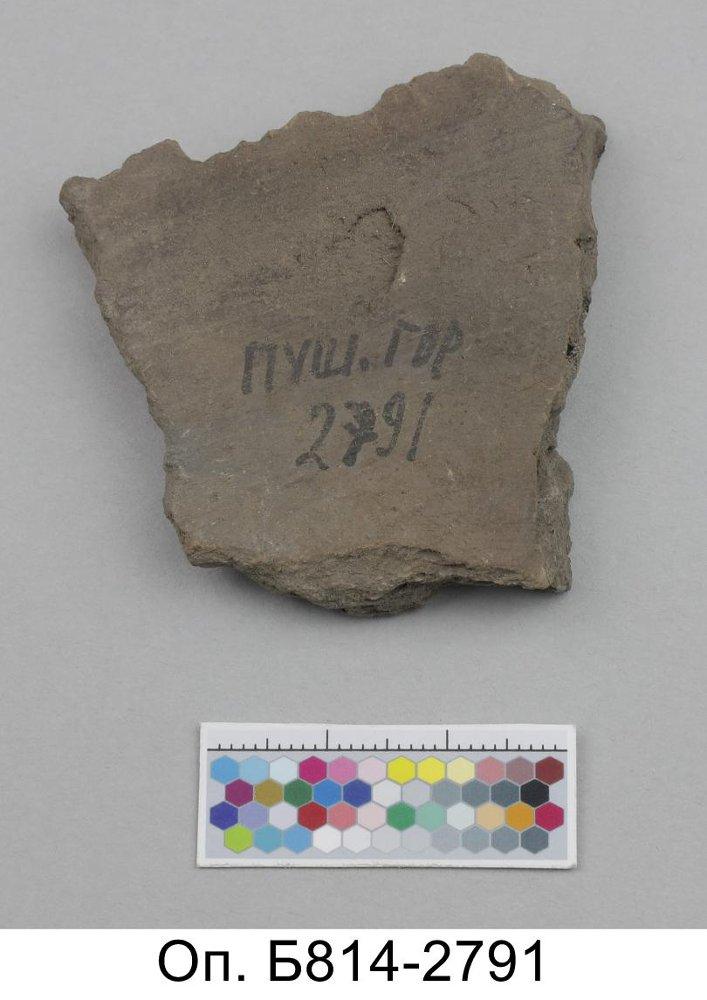 ПУШ. ГОР
2791
Оп. Б814-2791